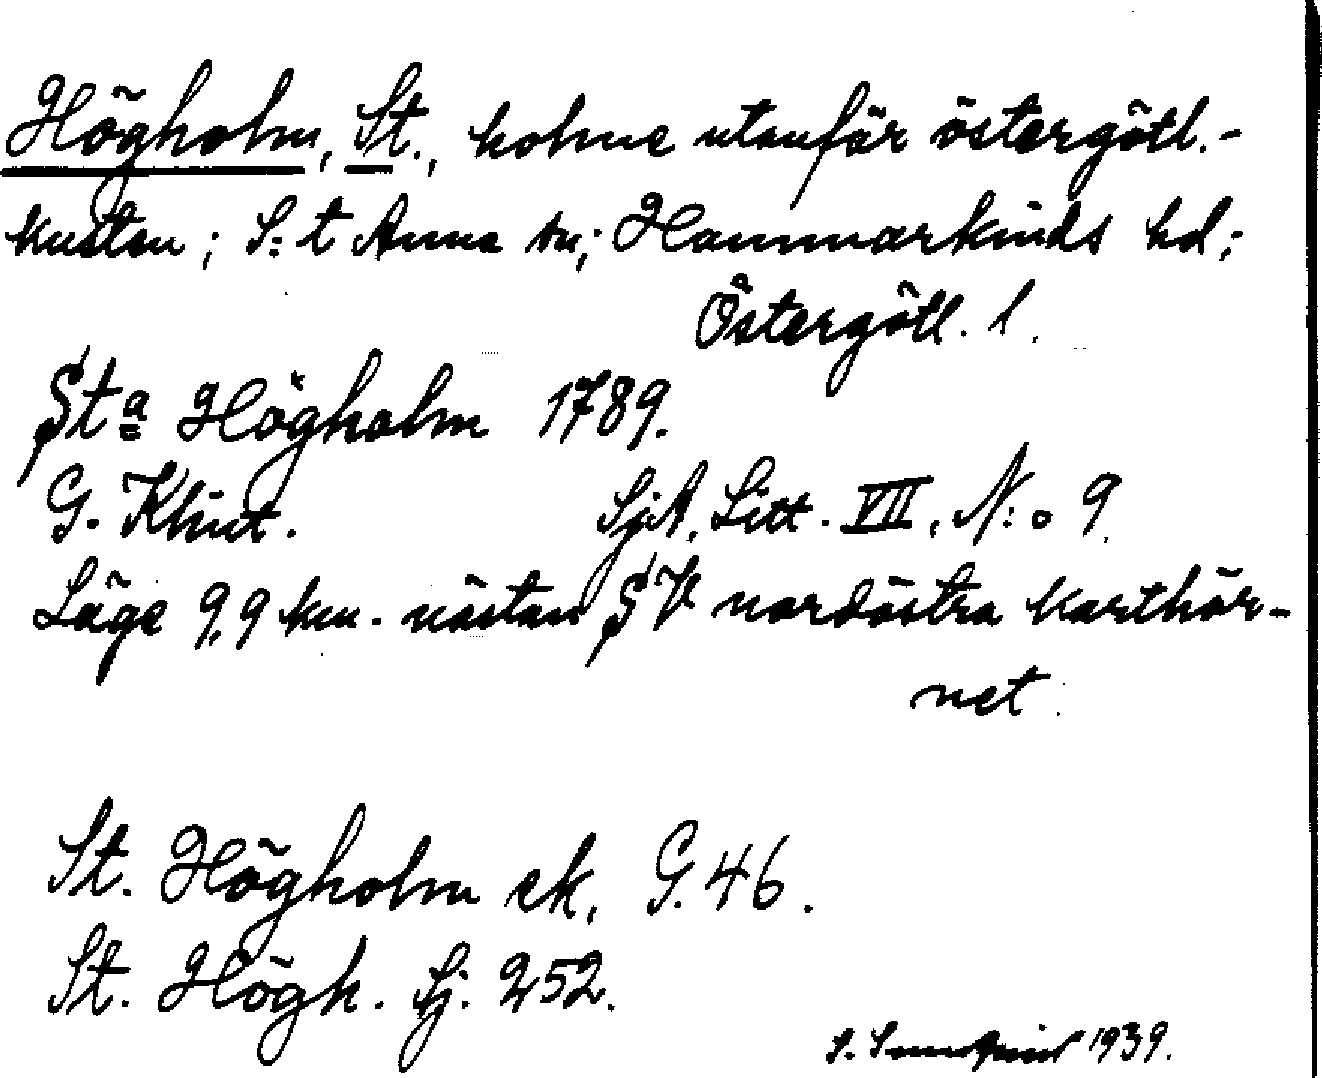 Högholm, St., holme utanför östergötl.-
kusten; S:t Anna sn; Hammarkinds hd;
Östergötl. l.
Sta Högholm 1789.
G. Klint. SjA, Litt. VII, N:o 9.
Läge 9,9 km. nästan SV nordöstra karthör-
net.
St. Högholm ek, G. 46.
St. Högh. Sj. 252.
S. 1939.